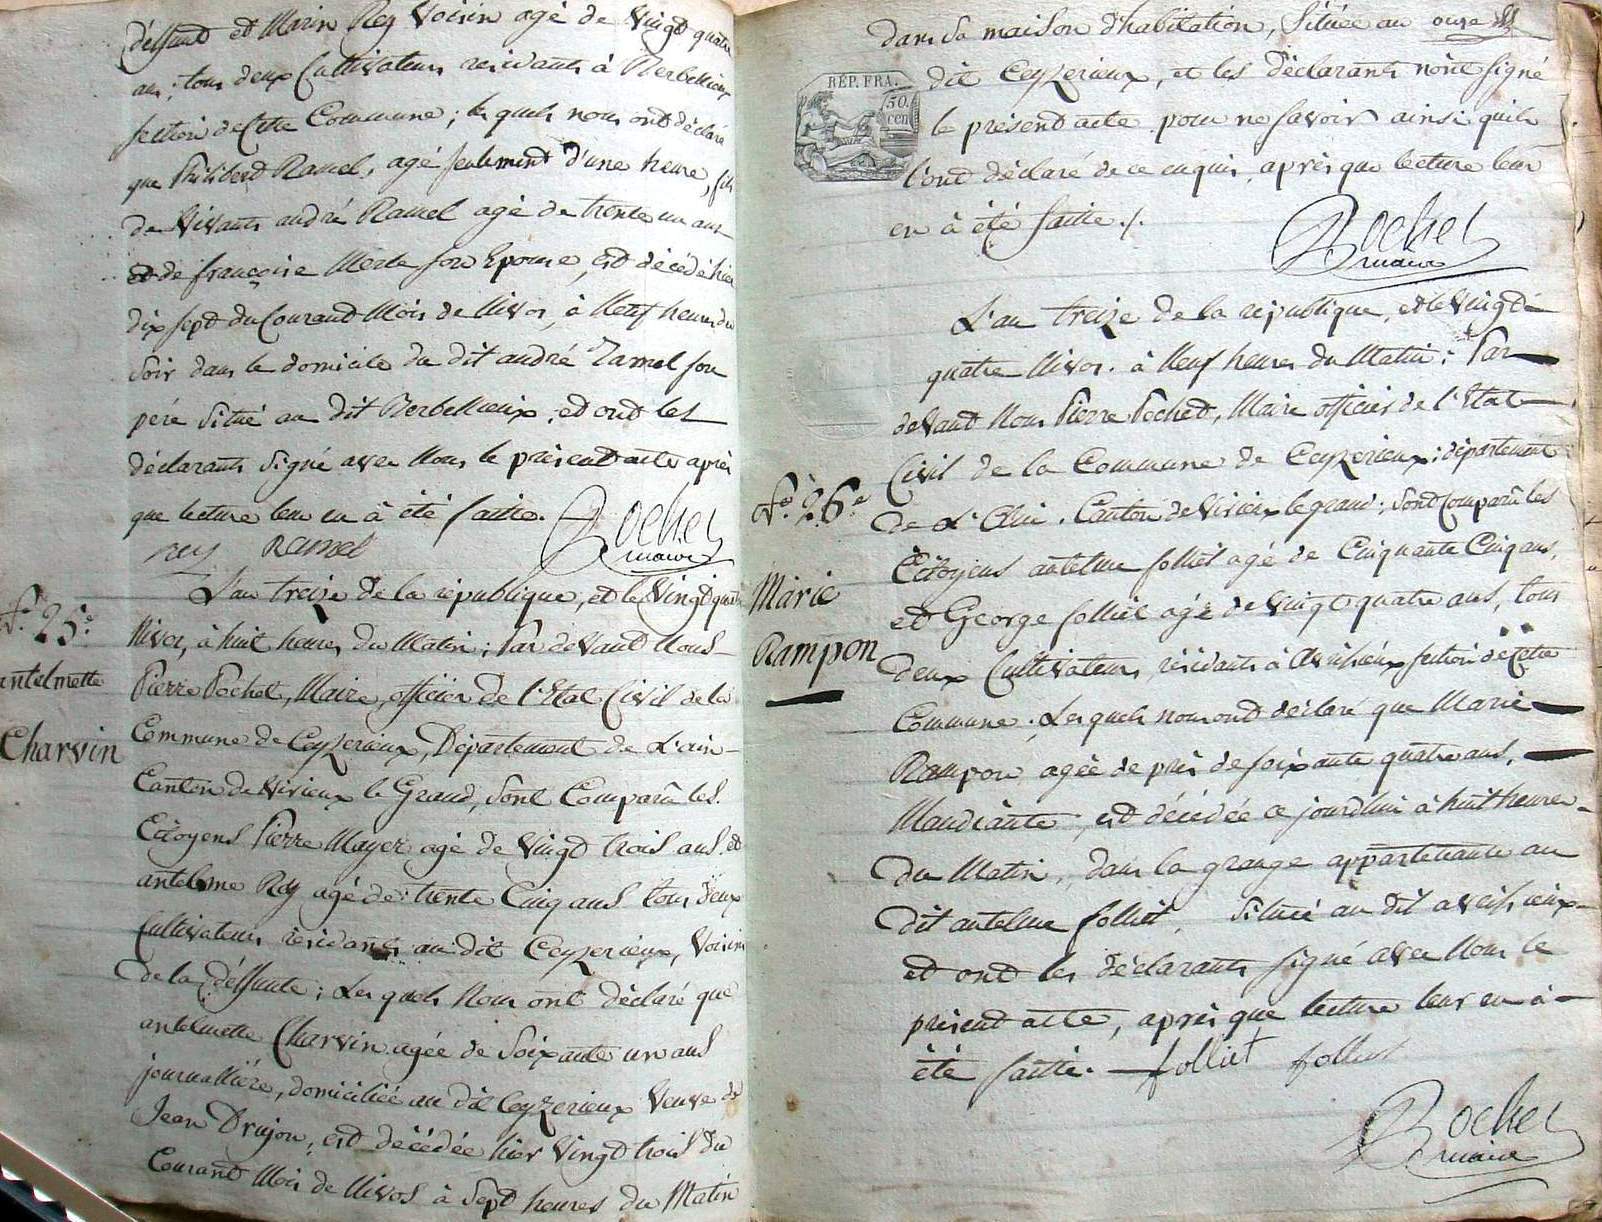 déffunt et Marin Rey Voisin agé de Vingt quatre
ans; tous deux Cultivateurs residants à Berbellieux
section de Cette Commune; les quels nous ont déclaré
que Philibert Ramel, agé seulement d'une heure, fils
de Vivants andré Ramel agé de trente un ans
et de françoise Merle son Epouse, est décédé hier
dix sept du Courant Mois de Nivos, à Neuf heures du
soir dans le domicile du dit andré Ramel son
pére situé au dit Berbellieux; et ont les
déclarants signé avec Nous le présent acte après
que lecture leur en à été faitte.
rey Ramel
Rochet
maire
N.º 25.e
antelmette
Charvin
L'an treize de la république, et le Vingt quatre
Nivos, à huit heures du Matin; Par devant Nous
Pierre Pochet, Maire, officier de l'Etat Civil de la
Commune de Ceyzerieux, Département de L'ain
Canton de Virieux le Grand, sont Comparû les
Citoyens Pierre Mayer agé de Vingt trois ans et
antelme Rey agé de trente Cinq ans tous deux
Cultivateurs residants au dit Ceyzerieux, Voisins
de la déffunte; Les quels Nous ont déclaré que
antelmette Charvin agée de Soixante un ans
journalliére, domiciliée au dit Ceyzerieux Veuve de
Jean Drujon, est décédée hier Vingt trois du
Courant Mois de Nivos à sept heures du Matin
dans sa maison d'habitation, située au
dit Ceyzerieux, et les déclarants n'ont signé
le présent acte pour ne savoir ainsi quils
l'ont déclaré de ce enquis, après que lecture leur
en à été faitte./.
REP. FRA.
50.
cen
Rochet
maire
N.º 26.e
Marie
Rampon
L'an treize de la république, et le Vingt
quatre Nivos. à Neuf heures du Matin; Par
devant Nous Pierre Pochet, Maire officier de l'Etat
Civil de la Commune de Ceyzerieux; département
de L'Ain. Canton de Virieux le grand; sont Comparû les
Citoyens antelme folliet agé de Cinquante Cinq ans,
et George folliet agé de Vingt quatre ans, tous
deux Cultivateurs, résidants à Aveissieux section de Cette
Commune. Les quels nous ont déclaré que Marie
Rampon agée de près de soixante quatre ans,
Mandiante, est décédée ce jourdhui à huit heures
du Matin, dans la grange appartenante au
dit antelme folliet, située au dit aveissieux
et ont les déclarants signé avec Nous le
présent acte, après que lecture leur en à
été faitte. folliet folliet
Rochet
maire